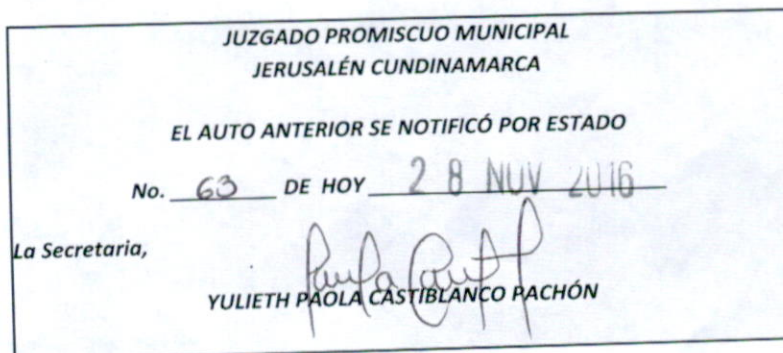 JUZGADO PROMISCUO MUNICIPAL
JERUSALÉN CUNDINAMARCA
EL AUTO ANTERIOR SE NOTIFICÓ POR ESTADO
No. 63 DE HOY 28 NOV 2016
La Secretaria,
YULIETH PAOLA CASTIBLANCO PACHÓN